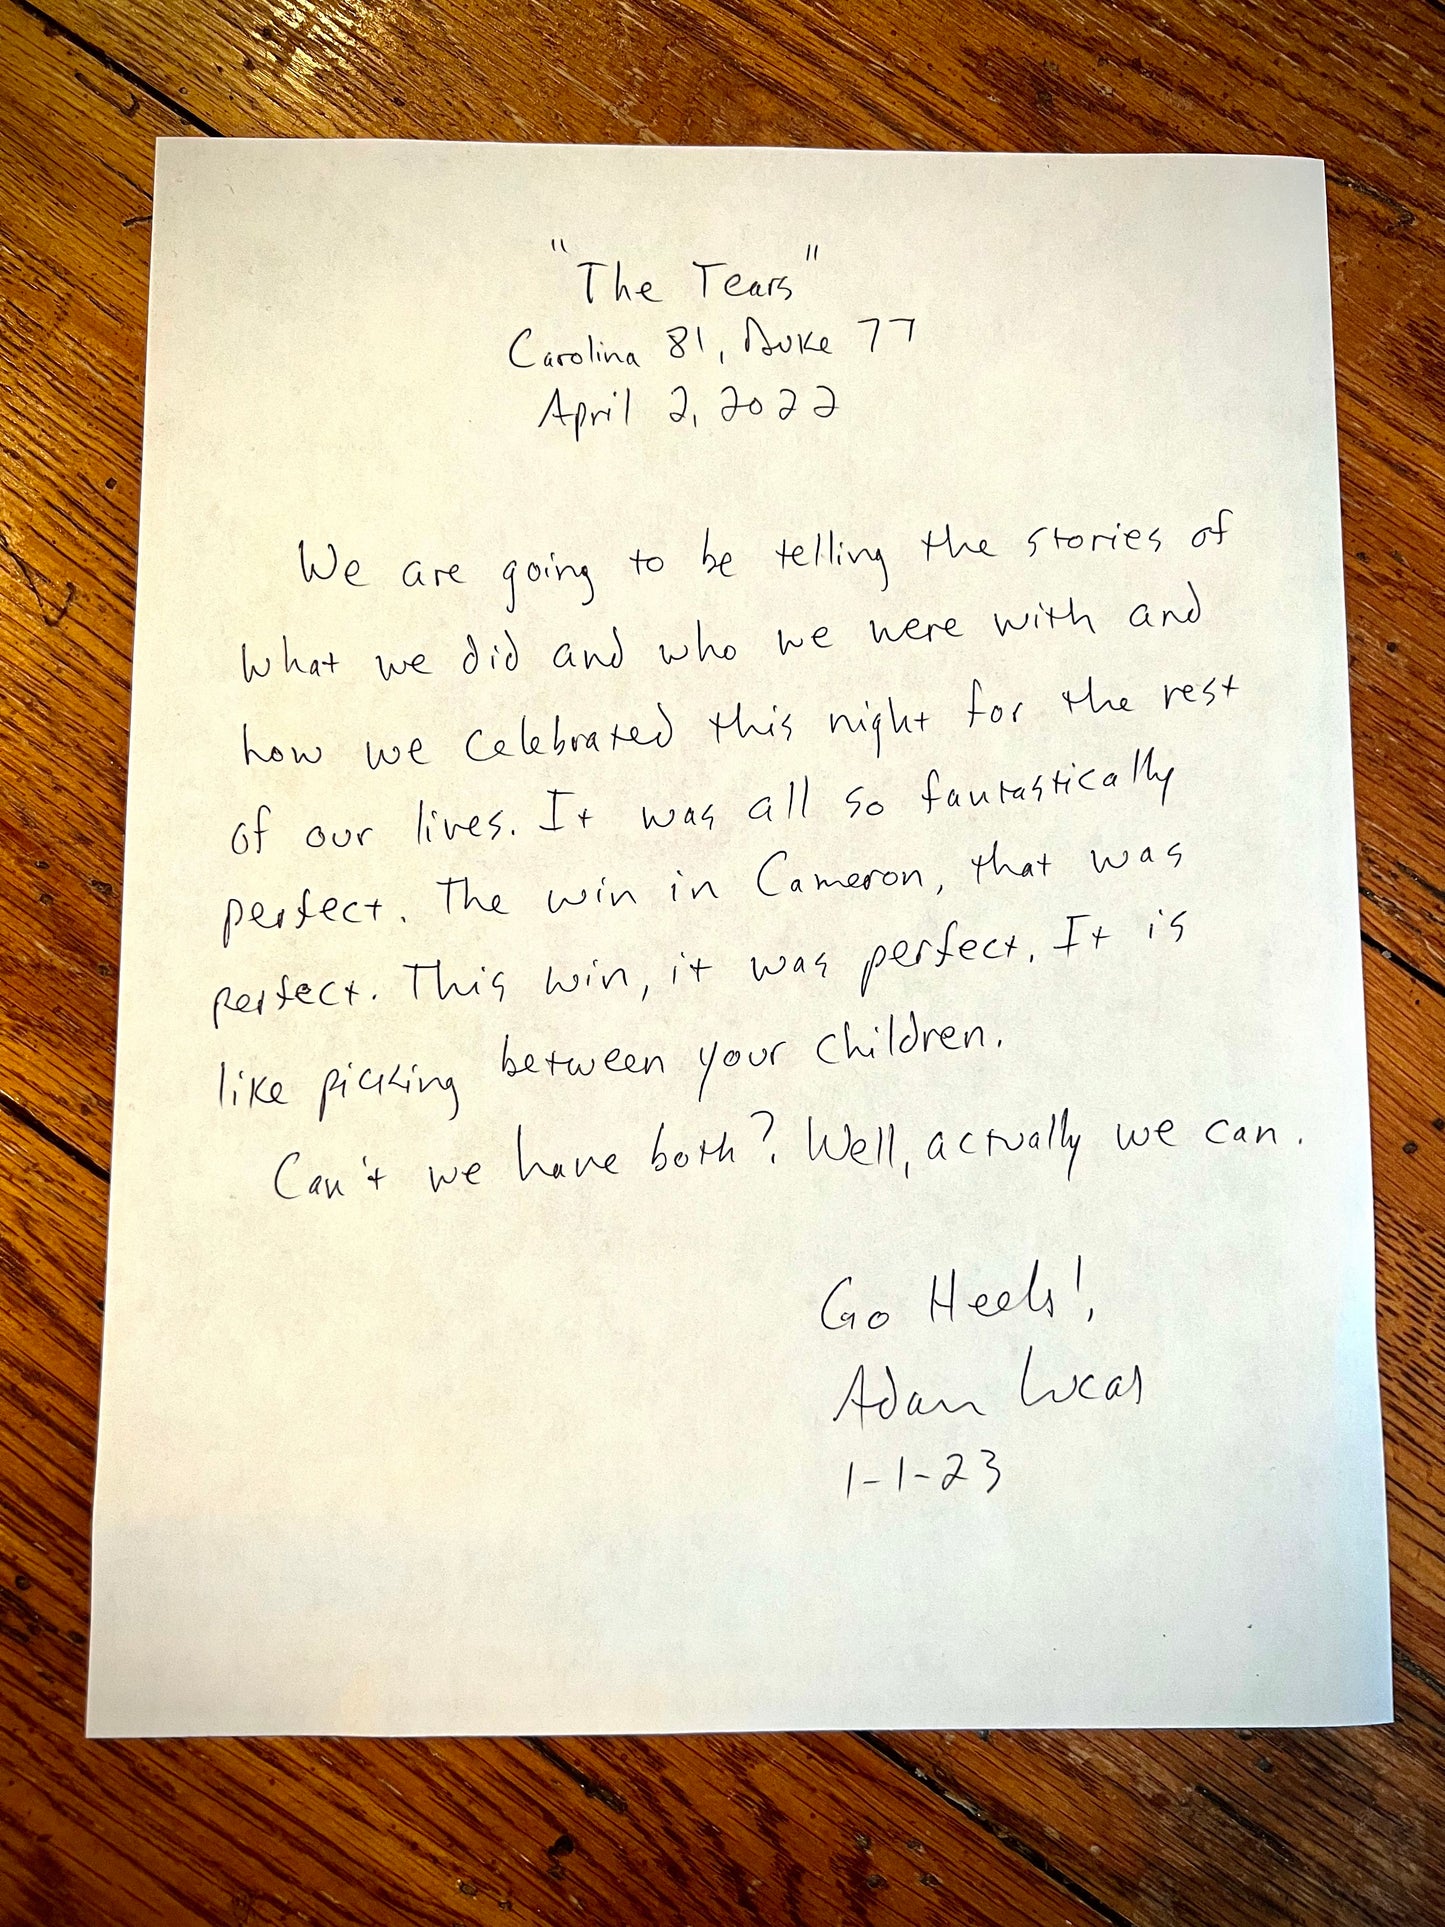 "The Tears"
Carolina 81, Duke 77
April 2, 2022
We are going to be telling the stories of
what we did and who we were with and
how we celebrated this night for the rest
of our lives. It was all so fantastically
perfect. The win in Cameron, that was
perfect. This win, it was perfect. It is
like picking between your children.
Can't we have both? Well, actually we can.
Go Heels!,
Adam Lucas
1-1-23